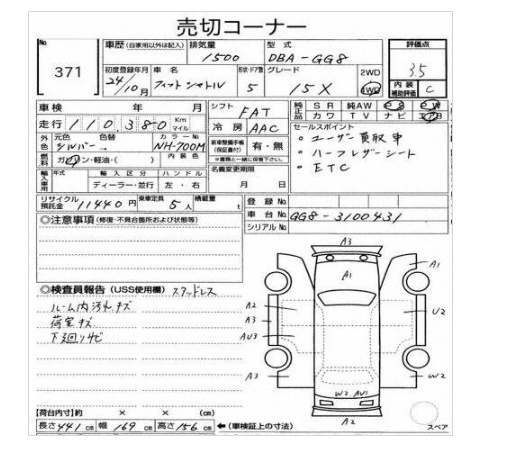 売切コーナー
No. 371
車歴 (自家用以外は記入) 排気量 1500 型式 DBA-GG8 評価点 3.5
初度登録年月 24/10月 車名 フィットシャトル 形状・ドア数 5 グレード 15X 2WD 4WD 内装補助評価 C
車検 年 月 シフト FAT 純正品 SR 純AW PS PW
走行 110,380 Km マイル 冷房 AAC カワ TV ナビ エアB
外色 元色 シルバー 色替 カラーNo NH-700M 有・無 セールスポイント
燃料 ガソリン・軽油・( ) 内装色 ・ユーザー買取車
輸入車用 年式 輸入区分 ハンドル 名義変更期限 ・ハーフレザーシート
ディーラー・並行 左・右 月 日 ・ETC
リサイクル預託金 11440円 乗車定員 5人 積載量 t 登録No.
◎注意事項 (修復・不具合箇所および状態等) 車台No. GG8-3100431
シリアルNo.
◎検査員報告 (USS使用欄) スタッドレス
ルーム内汚れ.キズ
荷室キズ
下廻りサビ
A3
A1
A1
A2
U2
A3
AU3
A3
W2
W2 AU1
A2
スペア
【荷台内寸】約 × × (cm)
長さ441cm 幅169cm 高さ156cm ←(車検証上の寸法)